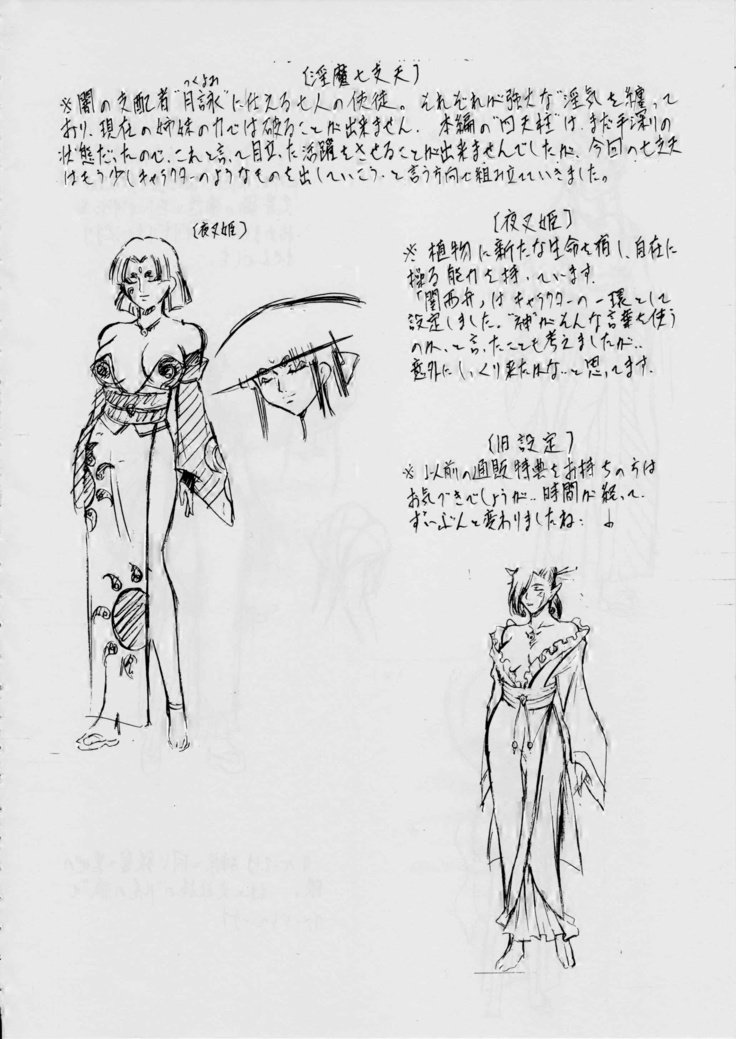 〔淫魔七支天〕
つくよみ
※闇の支配者"月詠"に仕える七人の使徒。それぞれが強大な"淫気"を纏って
おり、現在の姉妹の力では破ることが出来ません。本編の"四天柱"は、まだ手探りの
状態だったので、これと言って目立った活躍をさせることが出来ませんでしたが、今回の七支天
はもう少しキャラクターのようなものを出していこう、と言う方向で組み立てていきました。
〔夜叉姫〕
〔夜叉姫〕
※ 植物に新たな生命を宿し、自在に
操る能力を持っています。
「関西弁」はキャラクターの一環として
設定しました。"神"がそんな言葉を使う
のか、と言ったことも考えましたが、
意外にしっくり来たかな、と思ってます。
〔旧設定〕
※ 以前の通販特典をお持ちの方は
お気づきでしょうが、時間が経って、
ずいぶんと変わりましたね。